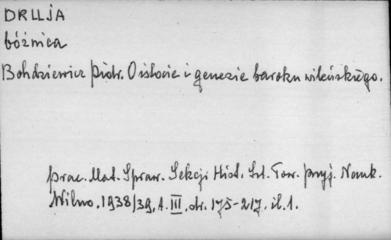 DRUJA
bóżnica
Bohdziewicz Piotr. O istocie i genezie baroku wileńskiego.
Prac. Mat. Spraw. Sekcji Hist. Szt. Tow. Przyj. Nauk.
Wilno, 1938/39, t. III, str. 175-217, il. 1.